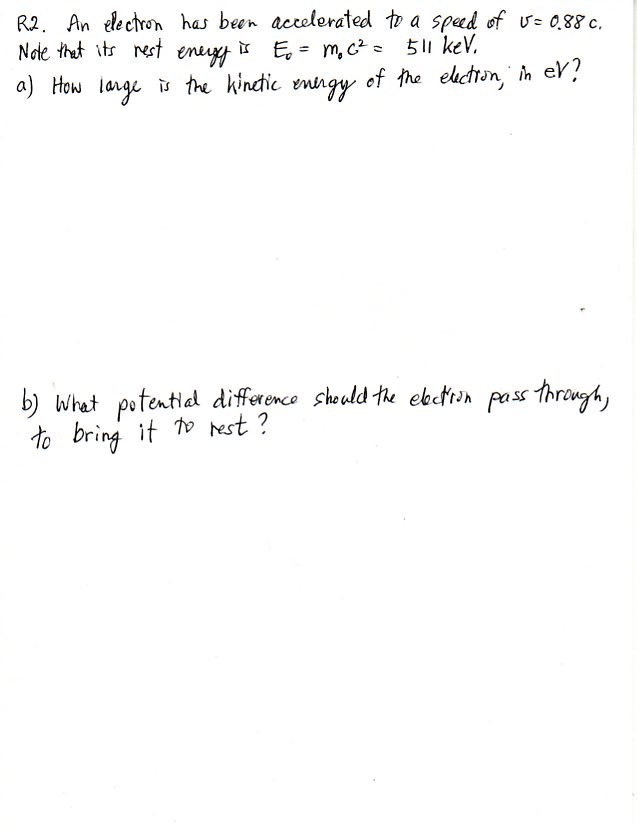 R2. An electron has been accelerated to a speed of v = 0.88 c.
Note that its rest energy is E₀ = m₀c² = 511 keV.
a) How large is the kinetic energy of the electron, in eV?
b) What potential difference should the electron pass through,
to bring it to rest?